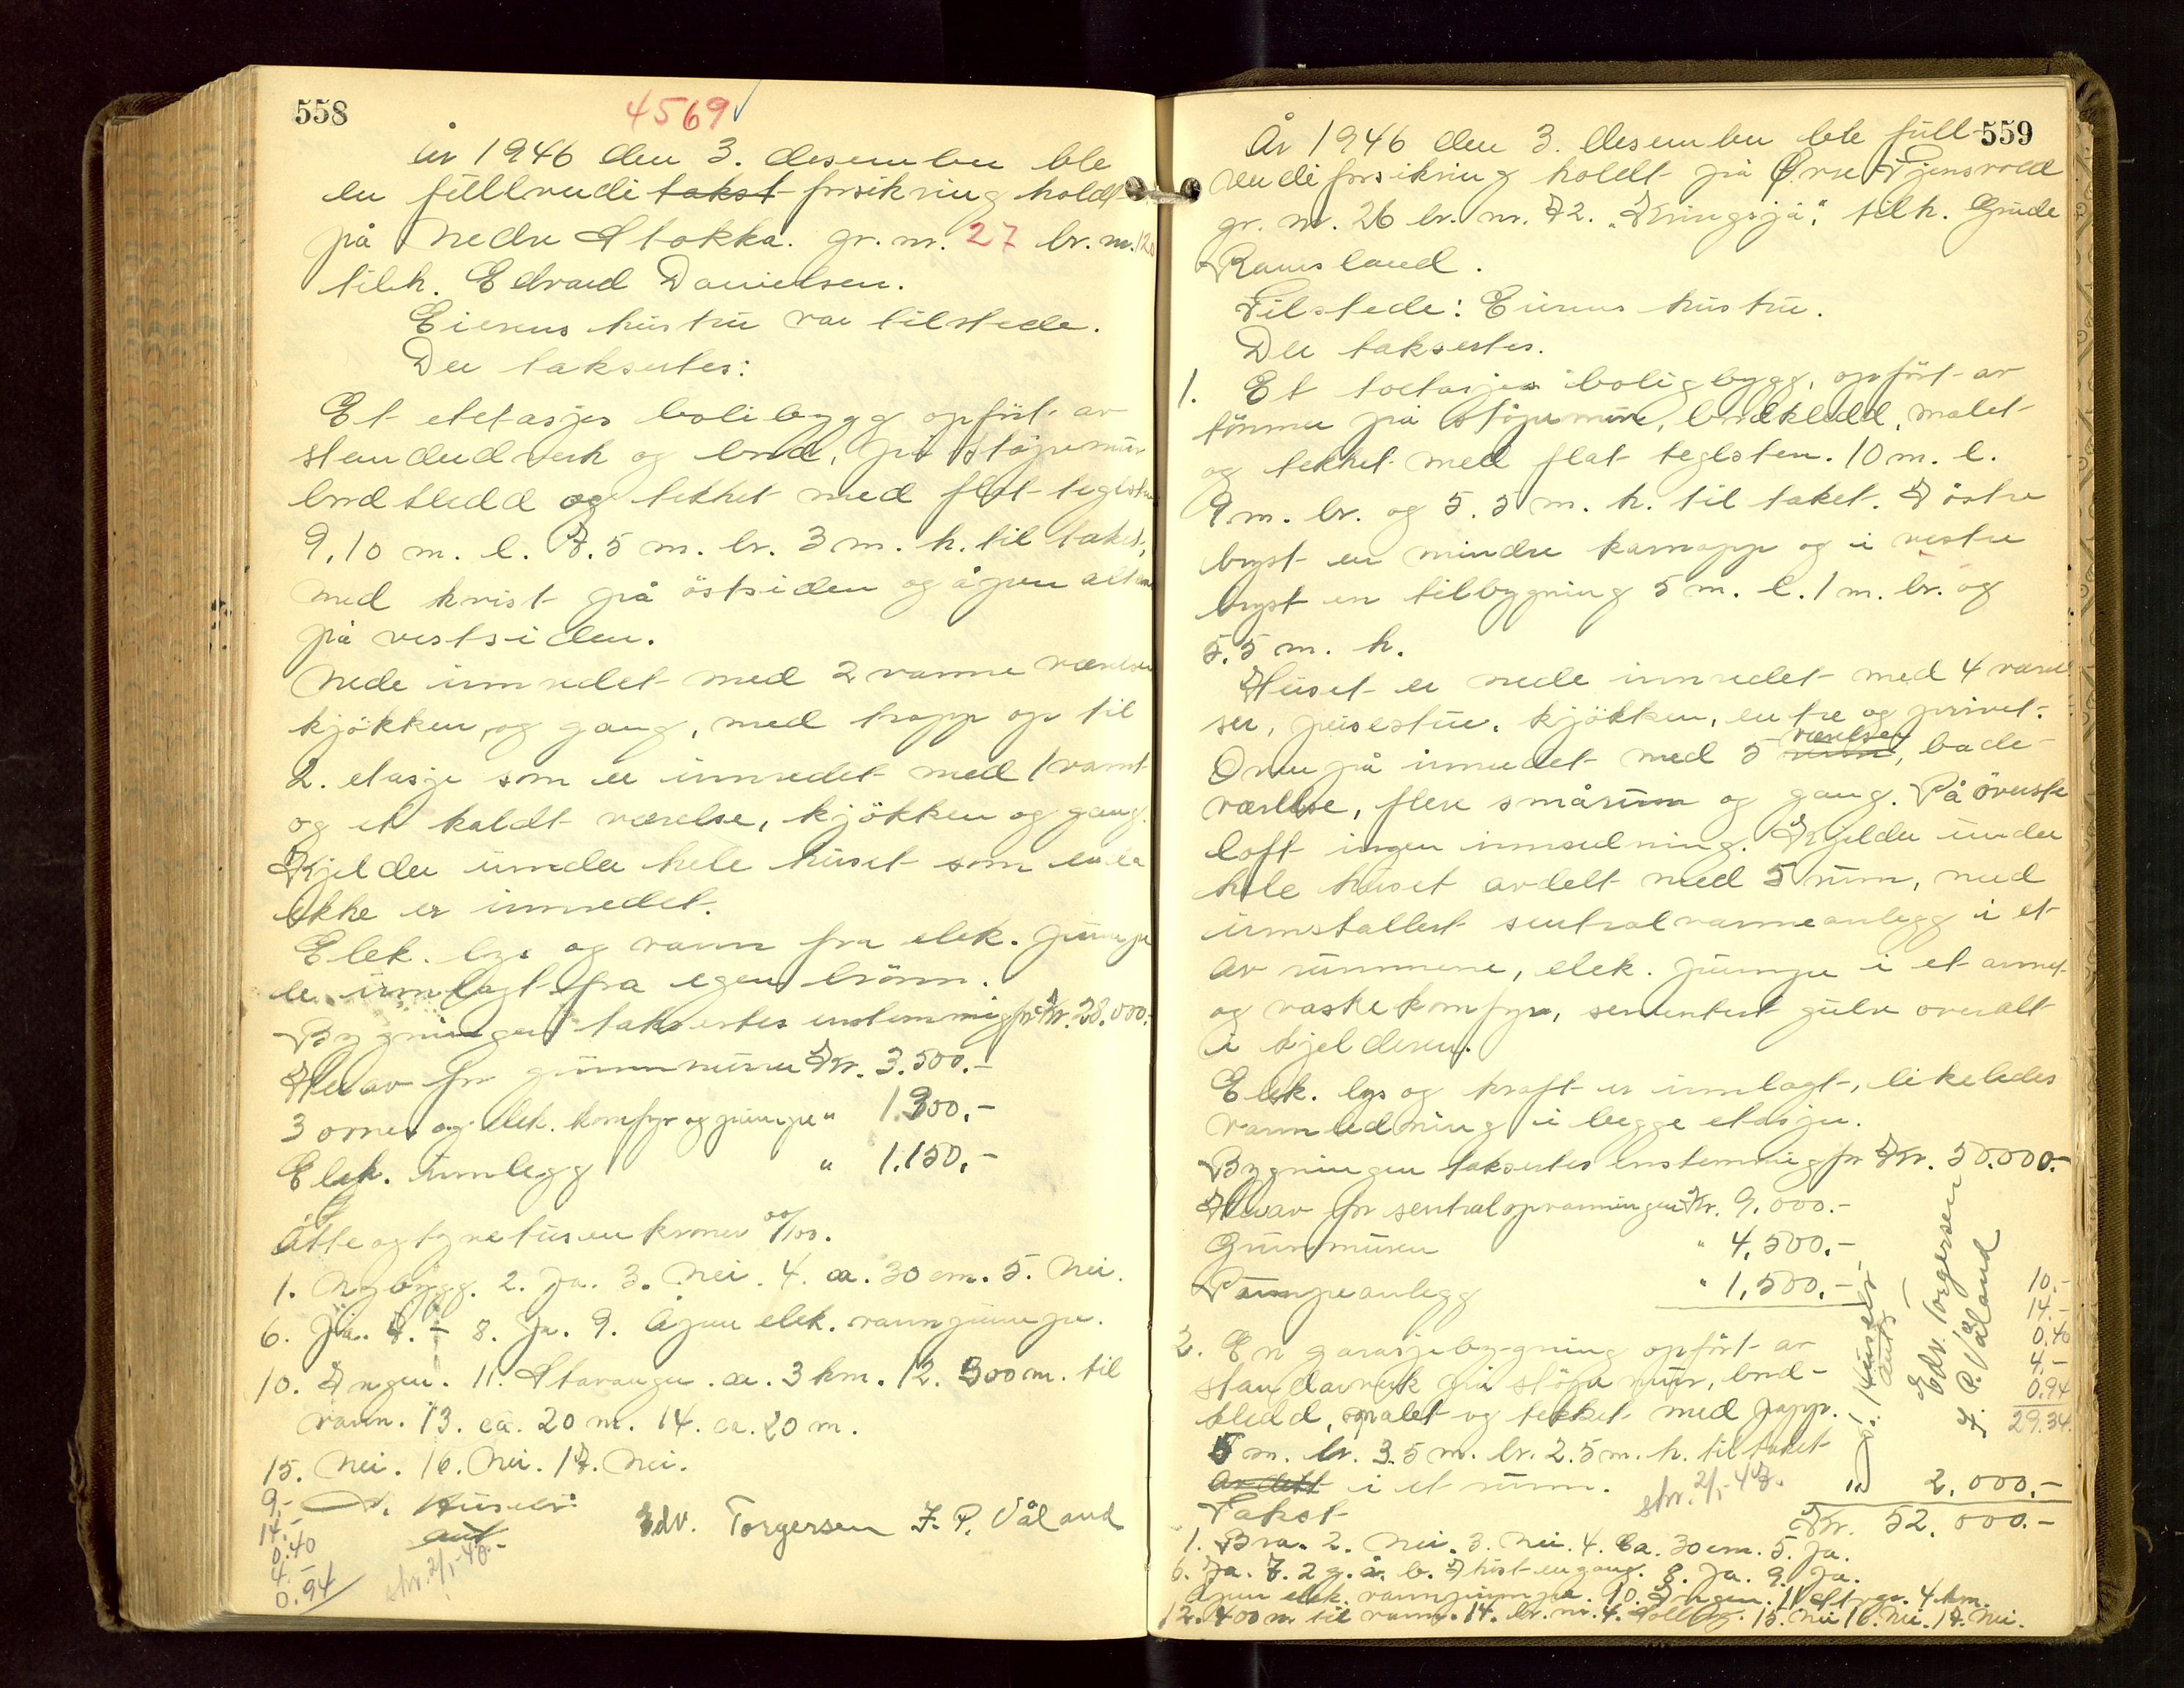 558
4569
År 1946 den 3. desember ble
en fullverdi takst forsikring holdt
på Nedre Stokka. gr. nr. 27 br. nr. 120
tilh. Edvard Danielsen.
Eierens hustru var tilstede.
Der taksertes:
Et etetasjes bolibygg opført av
stenderverk og bord, på støpemur
bordkledd og tekket med flat teglsten
9,10 m. l. 7.5 m. br. 3 m. h. til taket,
med kvist på östsiden og åpen altan
på vestsiden.
Nede innredet med 2 varme værelser
kjökken, og gang, med trapp op til
2. etasje som er innredet med 1 varmt
og et koldt værelse, kjökken og gang.
Kjelder under hele huset som enda
ikke er innredet.
Elek. lys og vann fra elek. pumpe
er innlagt fra egen brönn.
Bygningen taksertes enstemmig for Kr. 28.000.-
Herav for grunnmuren Kr. 3.500.-
3 ovner og elek. komfyr og pumpe " 1.300.-
Elek. innlegg " 1.150.-
Åtteogtyvetusen kroner 00/00.
1. Nybygg. 2. Ja. 3. Nei. 4. ca. 30 cm. 5. Nei.
6. Ja. 7. - 8. Ja. 9. Åpen elek. vannpumpe.
10. Ingen. 11. Stavanger. ca. 3 km. 12. 300 m. til
vann. 13. ca. 20 m. 14. ca. 20 m.
15. Nei. 16. Nei. 17. Nei.
9.-
14.-
0.40
4.-
0.94
Edv. Torgersen J. P. Våland
559
År 1946 den 3. desember ble full-
verdiforsikring holdt på Övre Tjensvold
gr. nr. 26 br. nr. 72. "Kringsjå", tilh. Gude
Ramsland.
Tilstede: Eierens hustru.
Der taksertes.
1. Et toetasjes boligbygg, opfört av
tömmer på støpemur, bordkledd, malet
og tekket med flat teglsten. 10 m. l.
9 m. br. og 5.5 m. h. til taket. I östre
bryst en mindre karnapp og i vestre
bryst en tilbygning 5 m. l. 1 m. br. og
5.5 m. h.
Huset er nede innredet med 4 værel
ser, peisestue, kjökken, entre og privet.
Ovenpå innredet med 5 rum værelser, bade-
værelse, flere smårum og gang. På överste
loft ingen innredning. Kjelder under
hele huset avdelt med 5 rum, med
innstallert sentralvarmeanlegg i et
av rummene, elek. pumpe i et annet
og vaskekomfyr, sementert gulv overalt
i kjelderen.
Elek. lys og kraft er innlagt, likeledes
vannledning i begge etasjer.
Bygningen taksertes enstemmig for Kr. 50.000.-
Herav for sentralopvarmingen Kr. 9.000.-
Grunnmuren " 4.500.-
Pumpeanlegg " 1.500.-
2. En garasjebygning opfört av
standarverk på stöpe mur, bord-
kledd, malet og tekket med papp.
5 m. br. 3.5 m. br. 2.5 m. h. til taket
avdelt i et rumm. " 2.000.-
Takst Kr. 52.000.-
Edv. Torgersen
J. P. Våland
10.-
14.-
0.40
4.-
0.94
29.34
1. Bra. 2. Nei. 3. Nei. 4. Ca. 30 cm. 5. Ja.
6. Ja. 7. 2 g. å. b. I höst en gang. 8. Ja. 9. Ja.
Åpen elek. vannpumpe. 10. Ingen. 11. Stvgr. 4 km.
12. 400 m til vann. 14. br. nr. 4. 15. Nei 16. Nei. 17. Nei.